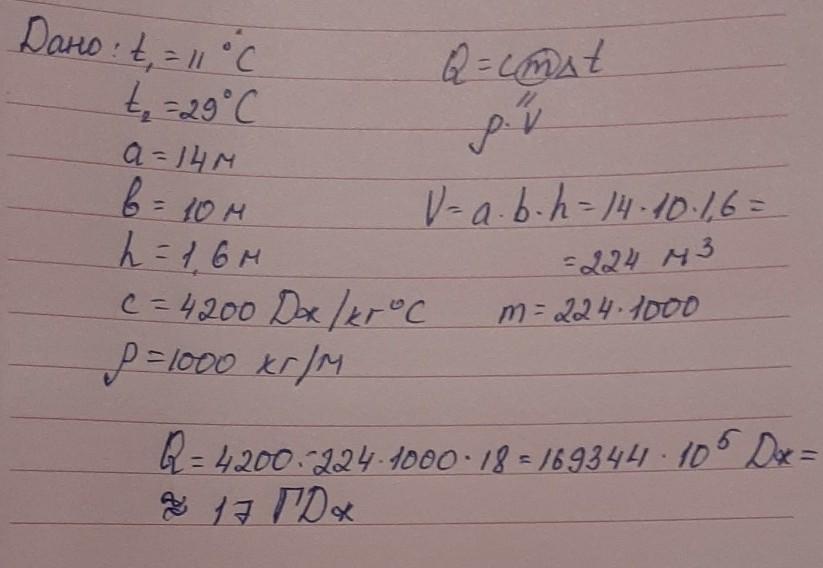 Дано: t₁ = 11 °C
t₂ = 29°C
a = 14 м
b = 10 м
h = 1,6 м
c = 4200 Дж/кг°C
ρ = 1000 кг/м
Q = cmΔt
=
ρ·V
V = a·b·h = 14·10·1,6 =
= 224 м³
m = 224·1000
Q = 4200·224·1000·18 = 169344·10⁵ Дж =
≈ 17 ГДж